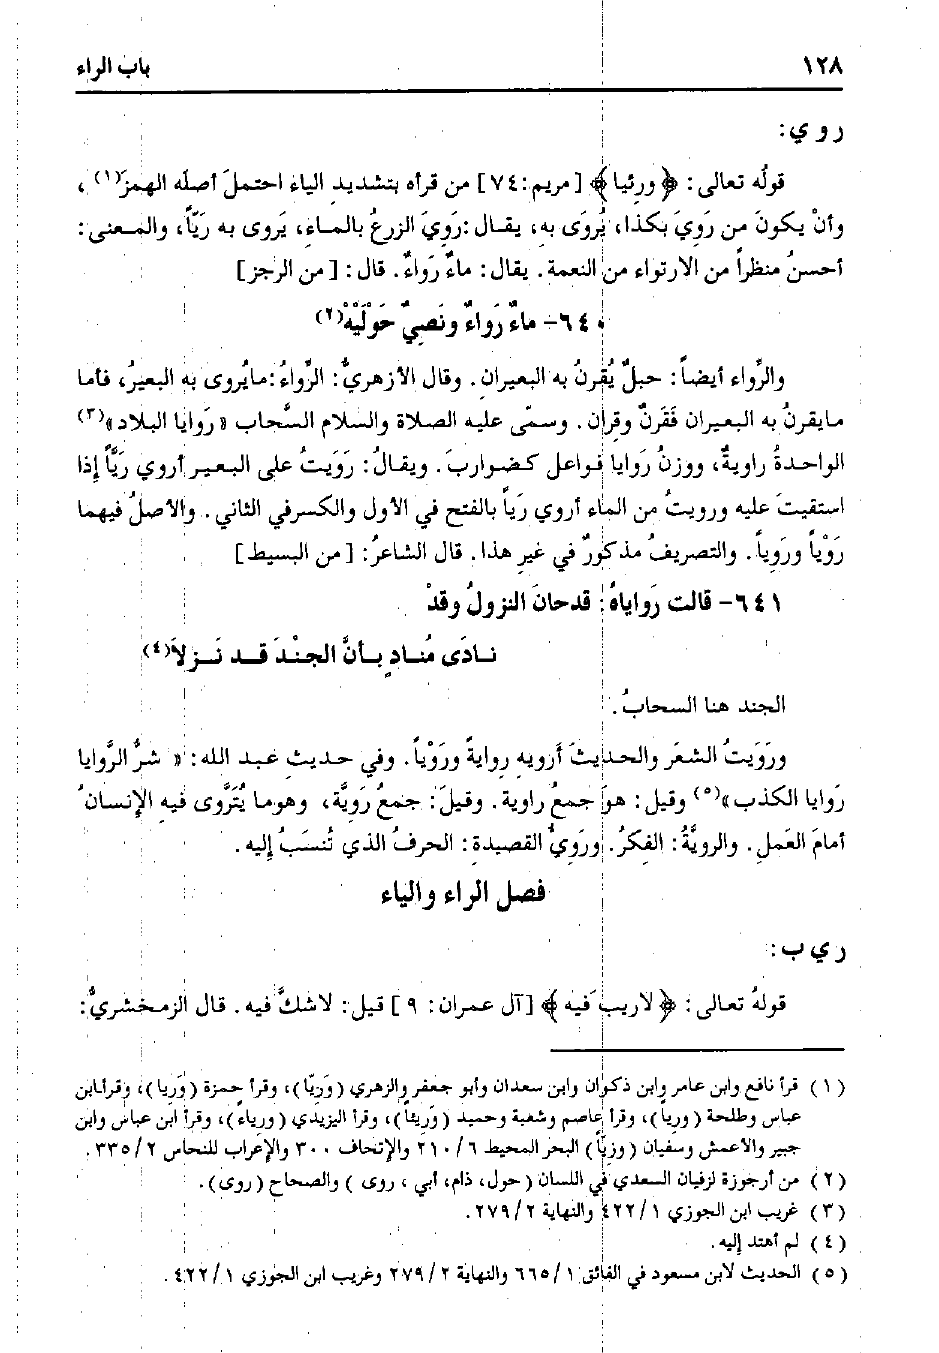 ١٢٨ باب الراء
ر و ي:
قولُه تعالى: ﴿ ورئيا ﴾ [ مريم: ٧٤] من قرأه بتشديدِ الياءِ احتملَ أصلُه الهمزَ(١) ،
وأنْ يكونَ من رَوِيَ بكذا، يُروَى به، يقـال :رَوِيَ الزرعُ بالمـاءِ، يَروى به رَيّاً، والمـعنى:
أحسنُ منظراً من الارتواء من النعمة. يقال: ماءٌ رَواءٌ. قال: [ من الرجز]
٦٤٠- ماءٌ رَواءٌ ونَصِيٌّ حَوْلَيْهْ(٢)
والرِّواء أيضاً: حبلٌ يُقرنُ به البعيرانِ. وقال الأزهريُّ: الرِّواءُ:مايُروى بهِ البعيرُ، فأما
مايقرنُ به البعيران فَقَرَنٌ وقِران. وسمّى عليه الصلاة والسلام السَّحاب « رَوايا البلاد»(٣)
الواحدةُ راويةٌ، ووزنُ رَوايا فواعل كـضواربَ. ويقـالُ: رَوَيتُ على البعـيرِ أروي رَيّاً إِذا
استقيتَ عليه ورويتُ من الماء أروي رَياً بالفتح في الأول والكسرفي الثاني. والأصلُ فيهما
رَوْياً ورَوِياً. والتصريفُ مذكورٌ في غيرِ هذا. قال الشاعرُ: [ من البسيط]
٦٤١- قالت رَواياهُ: قدحانَ النزولُ وقدْ
نـادَى مُنـادٍ بـأنَّ الجنْدَ قـد نَـزلاَ(٤)
الجند هنا السحابُ.
ورَوَيتُ الشعرَ والحديثَ أرويهِ رِوايةً ورَوْياً. وفي حديثِ عبد الله: « شرُّ الرَّوايا
رَوايا الكذب»(٥) وقيل: هوَ جمعُ راوية. وقيلَ: جمعُ رَوِيَّة، وهوما يُتَرَوَّى فيهِ الإِنسانُ
أمامَ العَملِ. والرويَّةُ: الفِكرُ. ورَوِيُّ القصيدةِ: الحرفُ الذي تُنسَبُ إِليه.
فصل الراء والياء
ر ي ب:
قولهُ تعالى: ﴿ لاريبَ فيه ﴾ [آل عمران: ٩ ] قيل: لاشكَّ فيه. قال الزمخشريُّ:
(١) قرأ نافع وابن عامر وابن ذكوان وابن سعدان وأبو جعفر والزهري (وَرِيّا)، وقرأ حمزة (وَريا)، وقرأابن
عباس وطلحة (ورياً)، وقرأ عاصم وشعبة وحميد (وَرِيئا)، وقرأ اليزيدي (ورياء)، وقرأ ابن عباس وابن
جبير والأعمش وسفيان (وزيّاً) البحر المحيط ٦ / ٢١٠ والإتحاف ٣٠٠ والإعراب للنحاس ٢ / ٣٣٥.
(٢) من أرجوزة لزفيان السعدي في اللسان (حول، ذام، أبي ، روى ) والصحاح (روى).
(٣) غريب ابن الجوزي ١ / ٤٢٢ والنهاية ٢ / ٢٧٩.
(٤) لم أهتد إليه.
(٥) الحديث لابن مسعود في الفائق ١ / ٦٦٥ والنهاية ٢ / ٢٧٩ وغريب ابن الجوزي ١ / ٤٢٢.